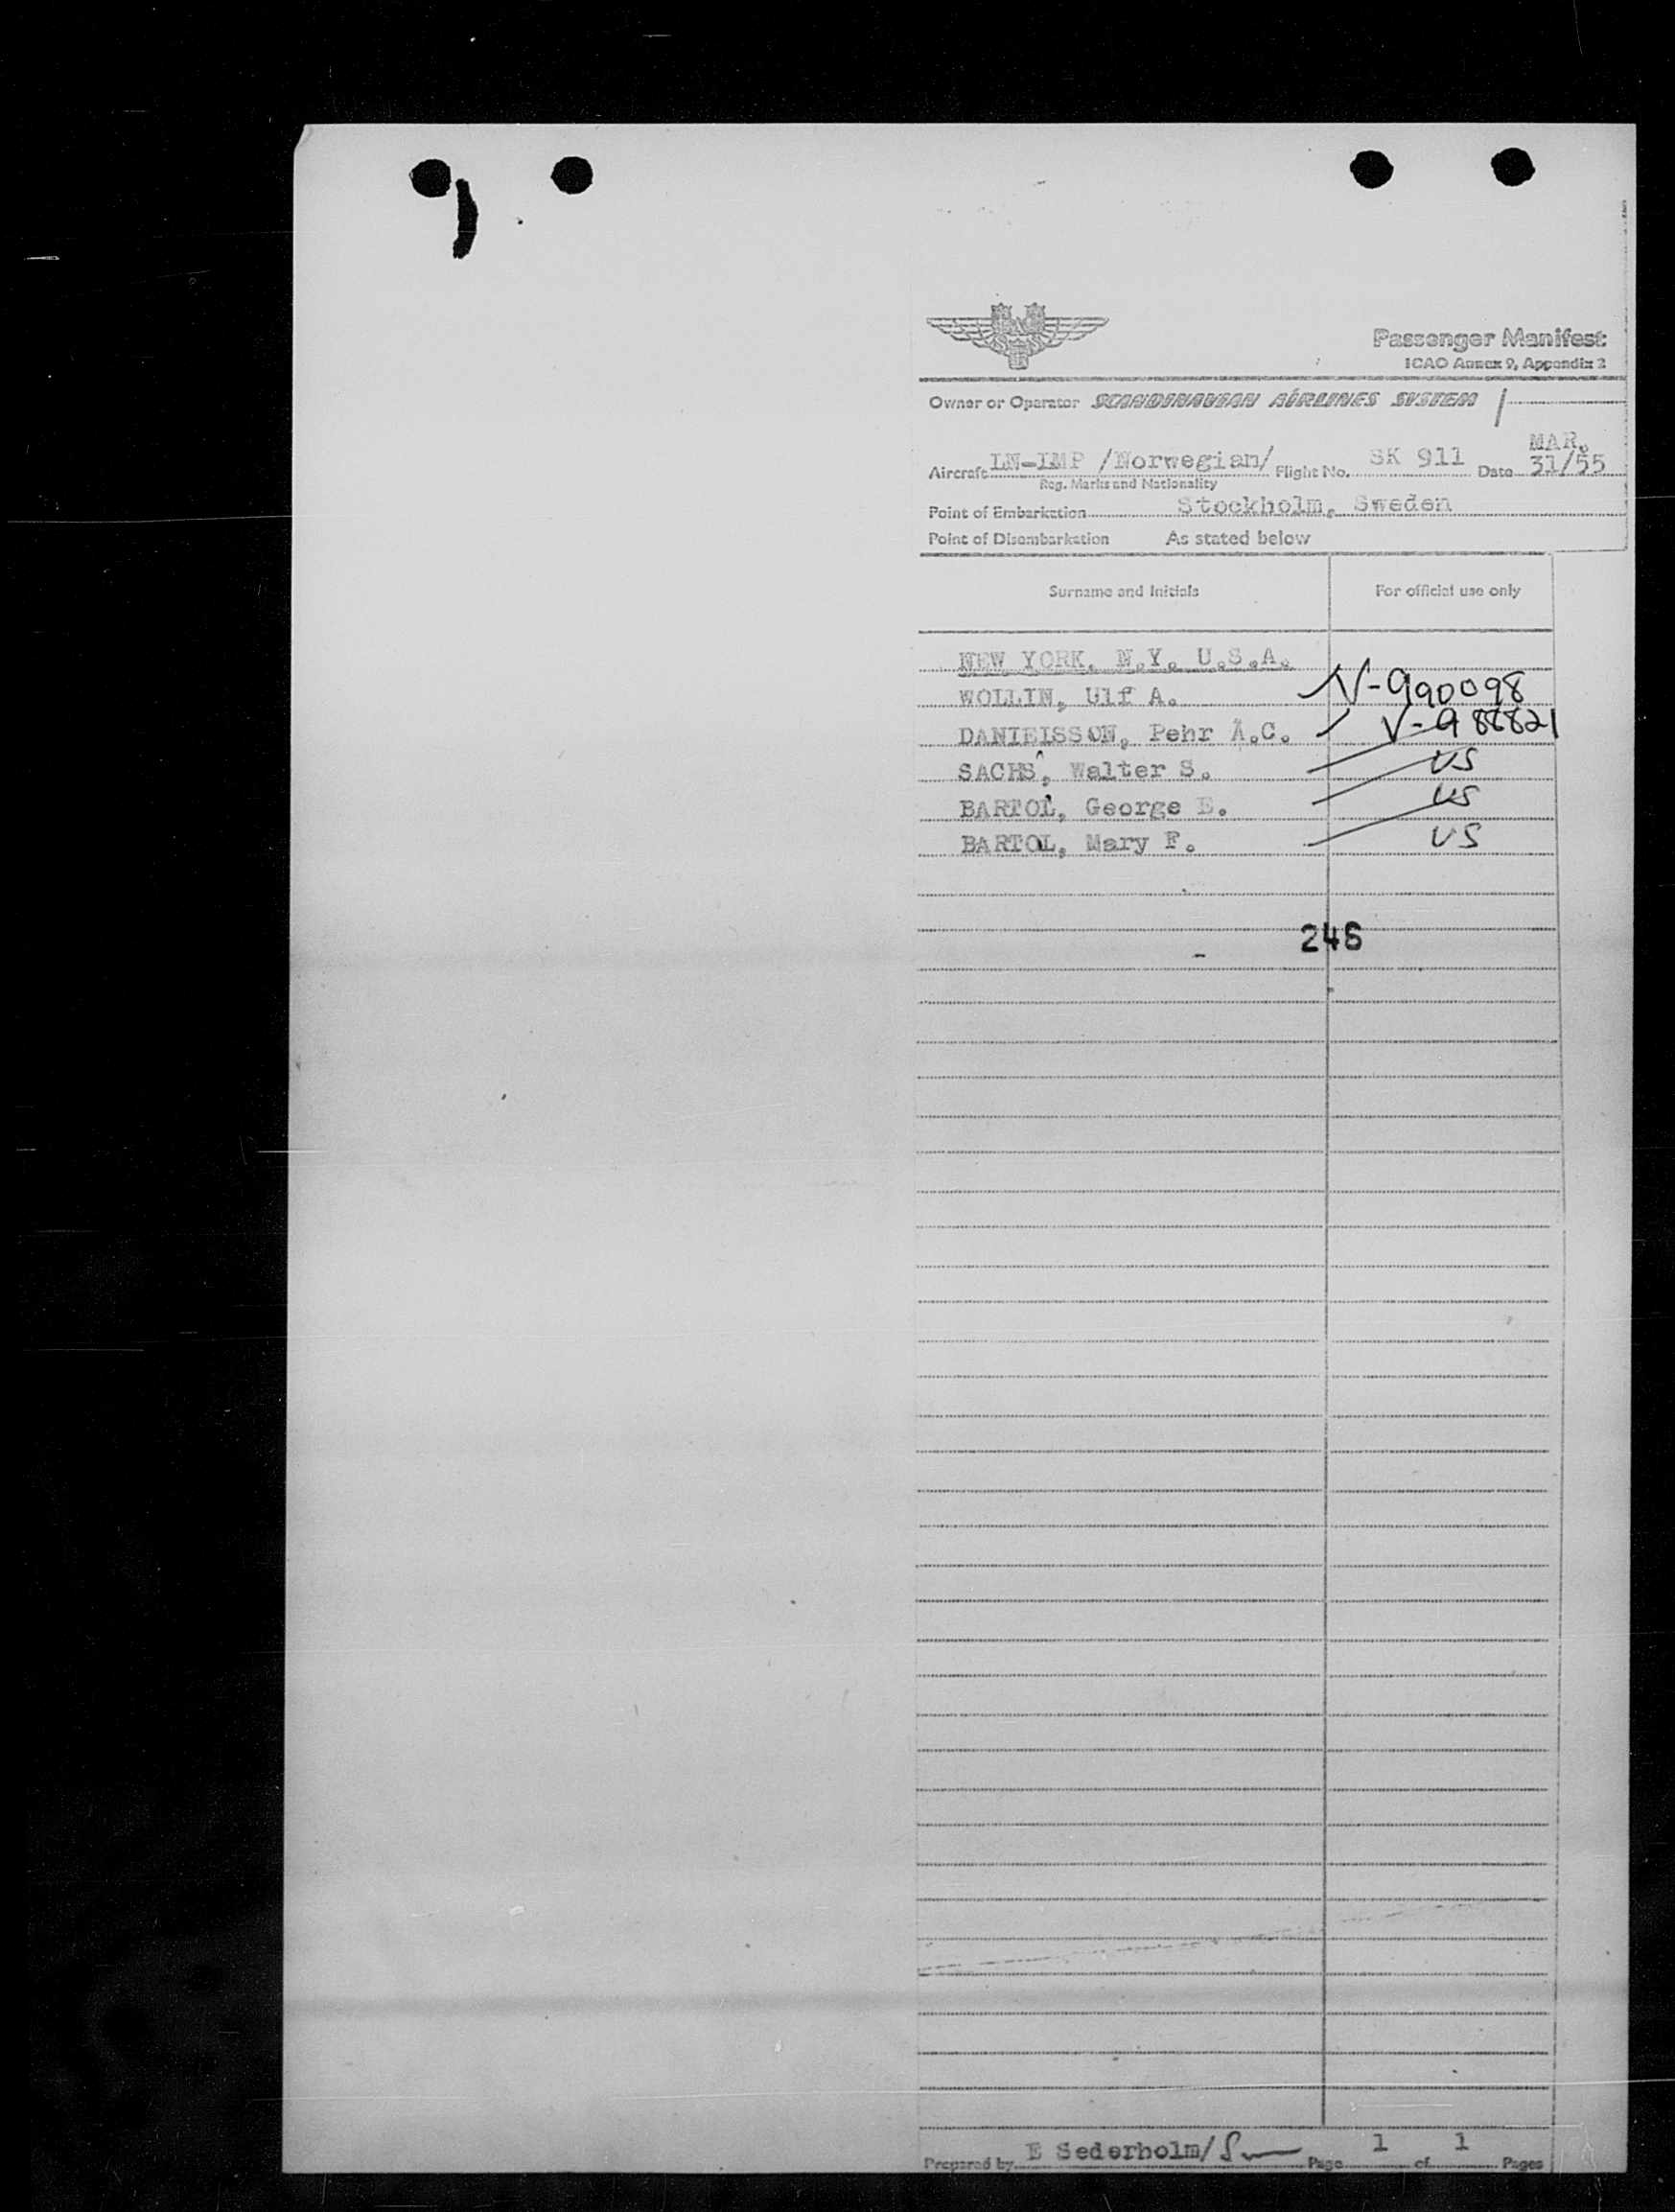 Passenger Manifest
ICAO Annex 9, Appendix 2
Owner or Operator SCANDINAVIAN AIRLINES SYSTEM
MAR.
Aircraft LN-LMP /Norwegian/ Flight No. SK 911 Date 31/55
Reg. Marks and Nationality
Point of Embarkation Stockholm, Sweden
Point of Disembarkation As stated below
Surname and Initials For official use only
NEW YORK, N.Y. U.S.A.
WOLLIN, Ulf A. V-990098
DANIEISSON, Pehr A.C. V-988821
SACHS, Walter S. US
BARTOL, George E. US
BARTOL, Mary F. US
246
Prepared by E Sederholm/ Page 1 of 1 Pages